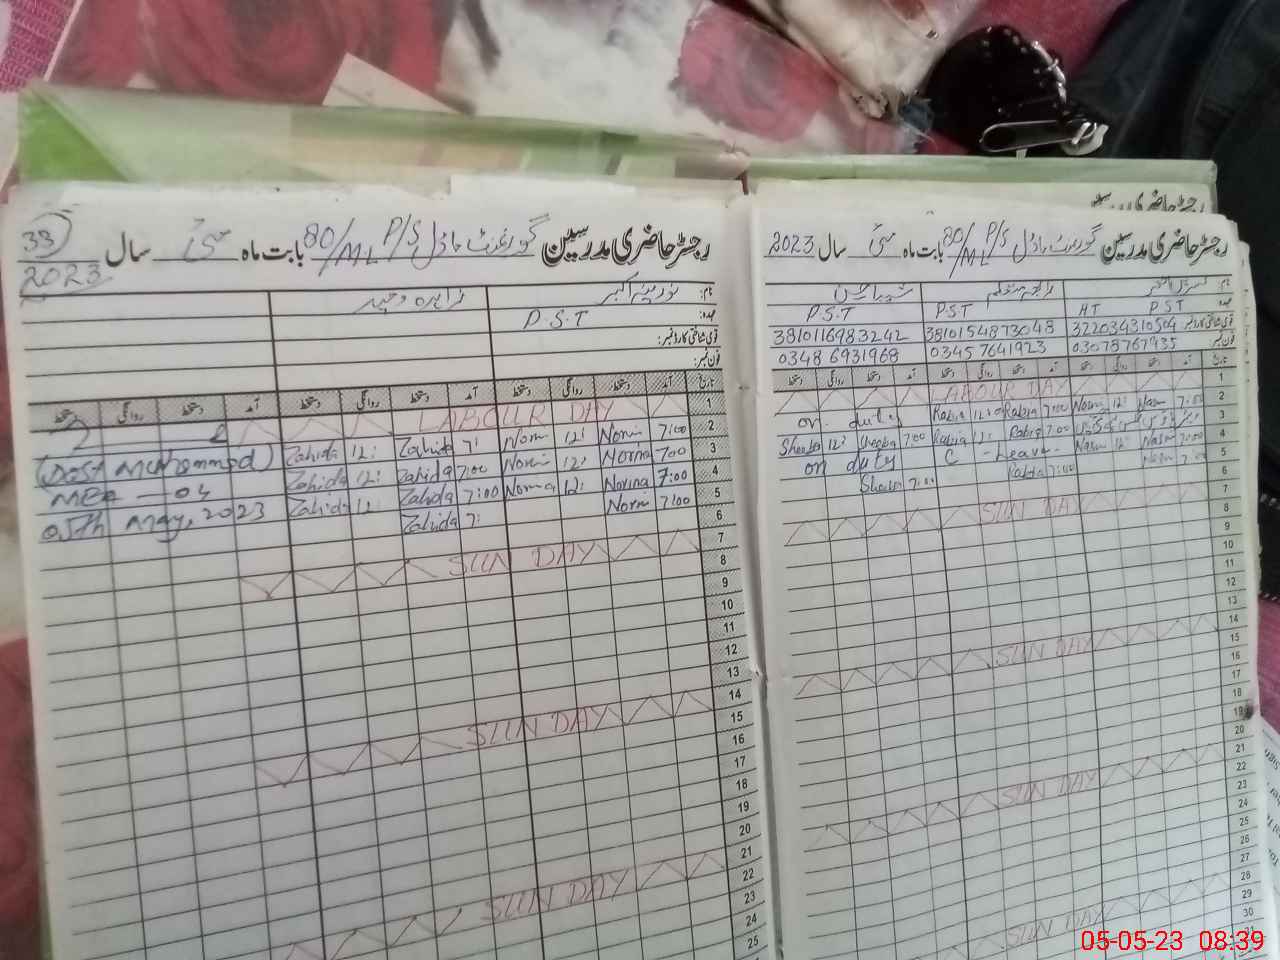 رجسٹر حاضری مدرسین
33
2023
رجسٹر حاضری مدرسین گورنمنٹ ماڈل P/S 80/ML بابت ماہ مئی سال
نام:
عہدہ: P.S.T
قومی شناختی کارڈ نمبر:
فون نمبر:
تاریخ آمد دستخط روانگی دستخط آمد دستخط روانگی دستخط آمد دستخط روانگی دستخط
1 LABOUR DAY
2 7:00 Norin 12: Norin 7: Zahida 12: Zahida
3 7:00 Norina 12: Norin 7:00 Zahida 12: Zahida
(Dost Muhammad)
4 7:00 Norina 12: Norina 7:00 Zahida 12: Zahida
MEA - 04
5 7:00 Norin 7: Zahida
05th May, 2023
6
7 SUN DAY
8
9
10
11
12
13
14 SUN DAY
15
16
17
18
19
20
21 SUN DAY
22
23
24
25
رجسٹر حاضری مدرسین گورنمنٹ ماڈل P/S 80/ML بابت ماہ مئی سال 2023
نام:
عہدہ: PST HT PST P.S.T
قومی شناختی کارڈ نمبر: 322034310504 3810154873048 3810116983242
فون نمبر: 03078767935 03457641923 03486931968
تاریخ آمد دستخط روانگی دستخط آمد دستخط روانگی دستخط آمد دستخط روانگی دستخط
1 LABOUR DAY
2 7:00 12: 7:00 Rabia 12: Rabia on duty
3 7:00 Rabia 12: Rabia 7:00 12:
4 7:00 12: C - Leave on duty
5 7:00 Rabia 7:00
6
7 SUN DAY
8
9
10
11
12
13
14 SUN DAY
15
16
17
18
19
20
21 SUN DAY
22
23
24
25
26
27
28 SUN DAY
29
30
31
05-05-23 08:39